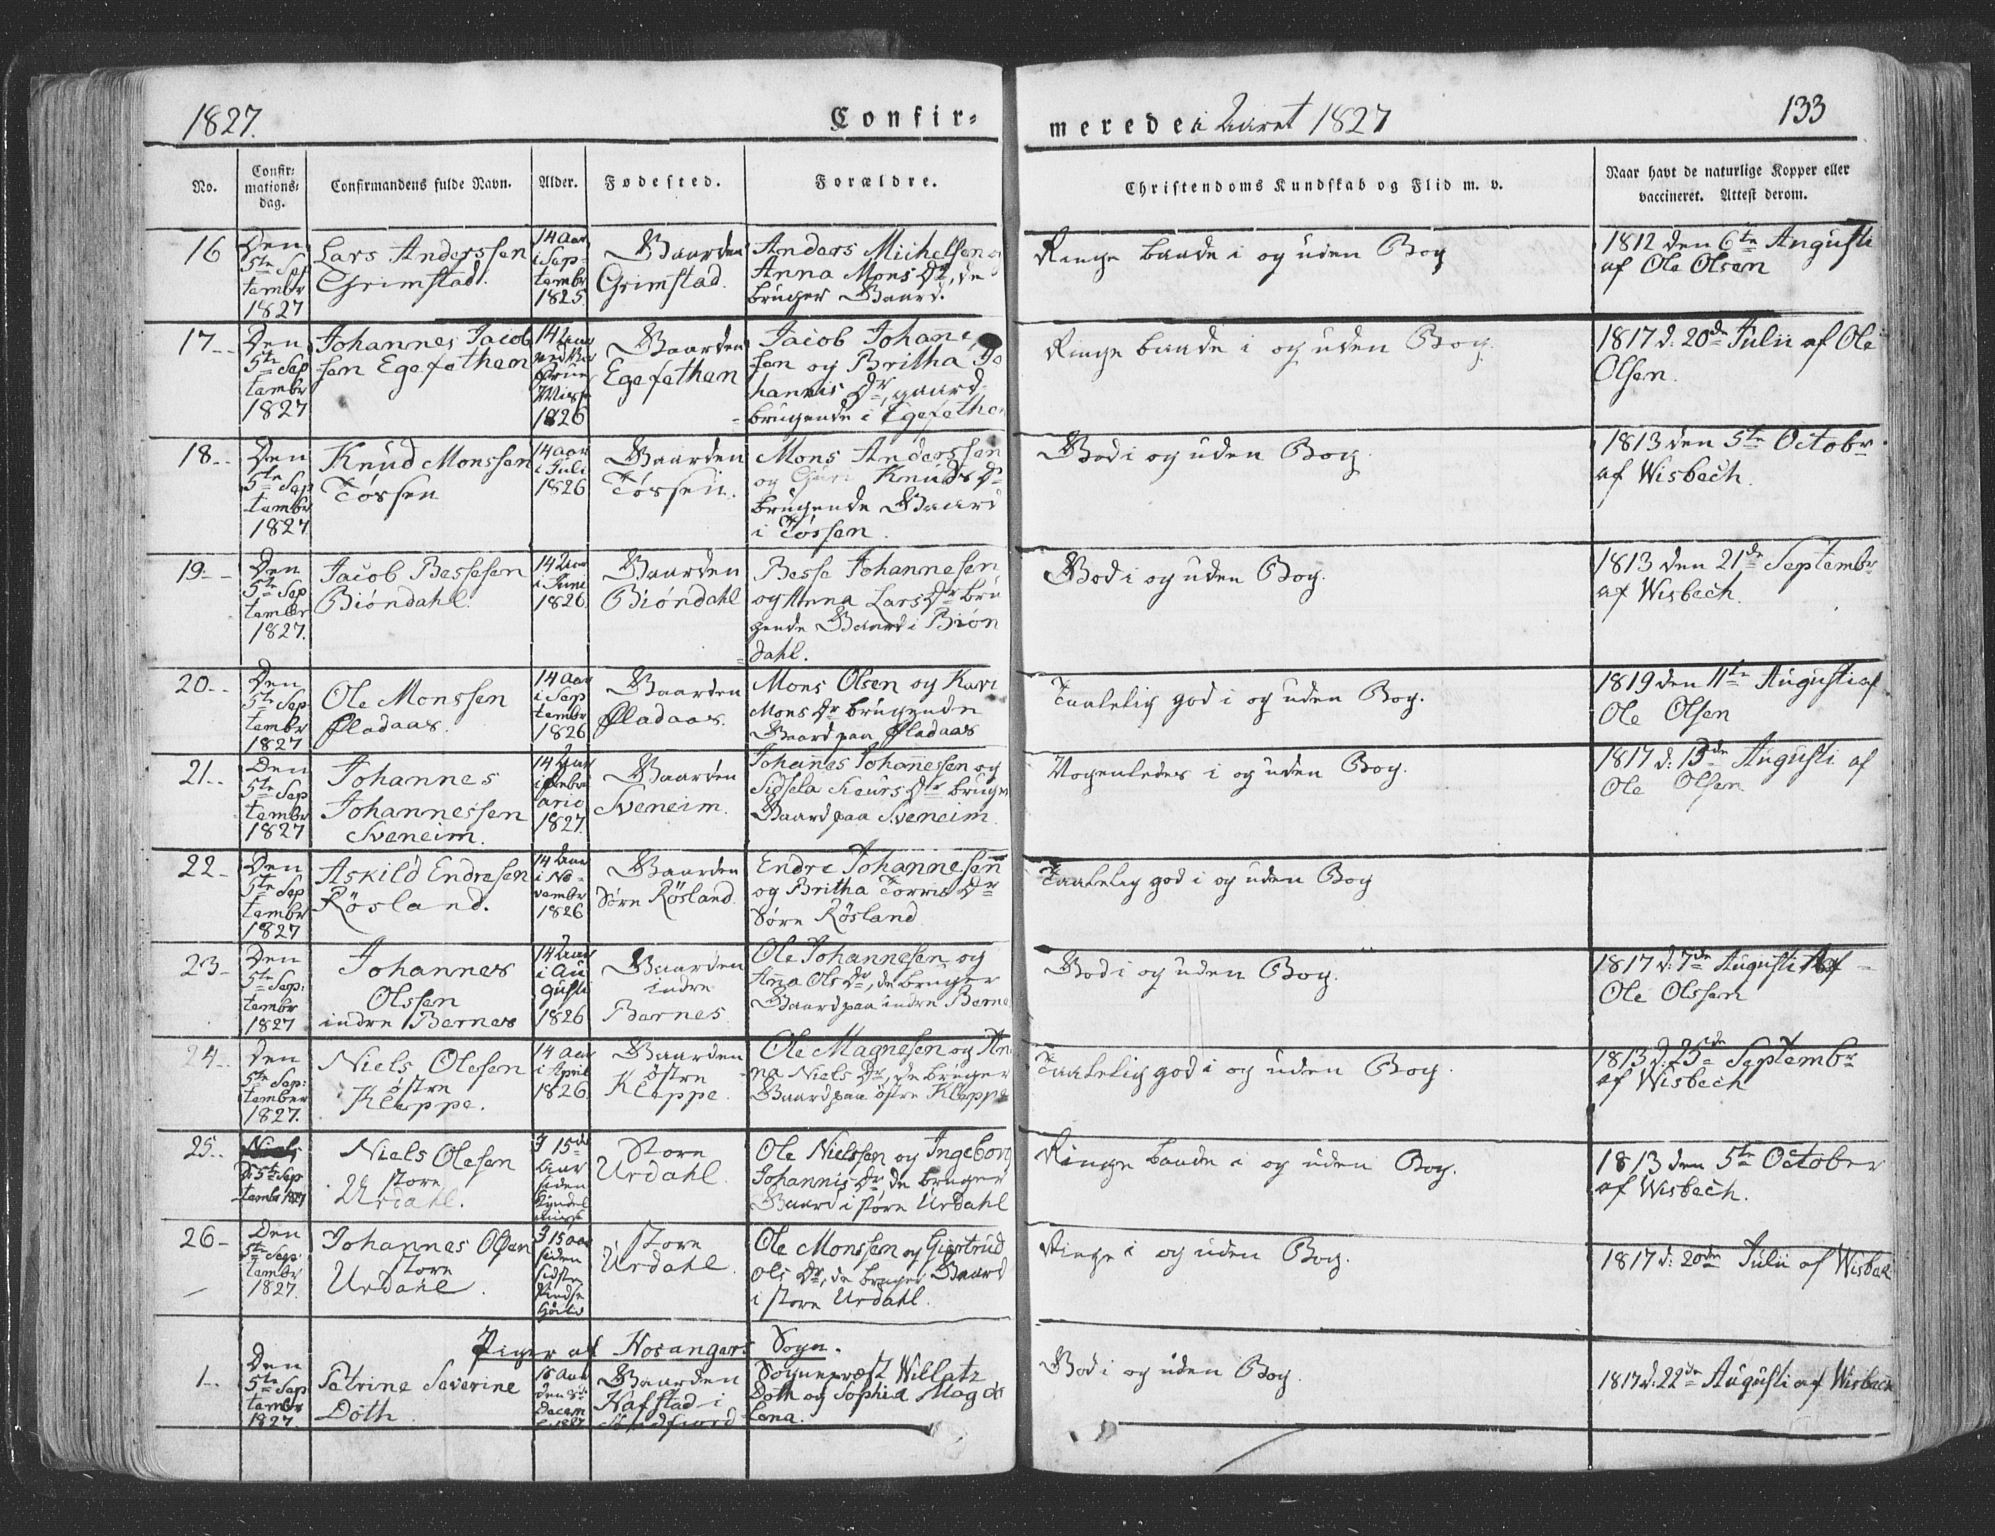 1827.
Confir-
merede i Aaret 1827
133
No.
Confir-
mations-
dag.
Confirmandens fulde Navn.
Alder.
Fødested.
Forældre.
Christendoms Kundskab og Flid m. v.
Naar havt de naturlige Kopper eller
vaccineret. Attest derom.
16
Den
5te Sep
tembr
1827
Lars Anderssen
Grimstad.
14 Aar
i Sep-
tembr
1825
Gaarden
Grimstad.
Anders Michelsen
Anna Mons Dr, de
bruger Gaard.
Ringe baade i og uden Bog
1812 den 6te Augusti
af Ole Olsen
17
Den
5te Sep
tembr
1827
Johannes Jacob
sen Egefethen
14 Aar
1826
Gaarden
Egefethen
Jacob Johanne
sen og Britha Jo
hannis Dr, gaard-
brugende i Egefethen
Ringe baade i og uden Bog.
1817 d: 20de Julii af Ole
Olsen.
18
Den
5te Sep
tembr
1827
Knud Monssen
Tøssen
14 aar
i Juli
1826
Gaarden
Tøssen.
Mons Anderssen
og Guri Knuds Dr
brugende Gaard
i Tøssen.
God i og uden Bog
1813 den 5te Octobr
af Wisbech.
19
Den
5te Sep
tember
1827.
Jacob Bessesen
Biøndahl.
14 Aar
i Juni
1826
Gaarden
Biøndahl
Besse Johannesen
og Anna Lars Dr bru
gende Gaard i Biøn
dahl.
God i og uden Bog.
1813 den 21de Septembr
af Wisbech.
20
Den
5te Sep
tembr
1827
Ole Monssen
Øladaas.
14 Aar
i Sep
tembr
1826
Gaarden
Øladaas.
Mons Olsen og Kari
Mons Dr brugende
Gaard paa Øladaas
Taalelig god i og uden Bog.
1819 den 11te Augusti af
Ole Olsen
21
Den
5te Sep
tembr
1827
Johannes
Johannessen
Sveneim.
14 Aar
i Febru
ario
1827.
Gaarden
Sveneim.
Johanes Johanesen og
Sidsela Sieurs Dtr bruger
Gaard paa Sveneim.
Nogenledes i og uden Bog.
1817 d: 13de Augusti af
Ole Olsen
22
Den
5te Sep
tembr
1827
Askild Endresen
Røsland.
14 Aar
i No-
vembr
1826
Gaarden
Søre Røsland.
Endre Johannesen
og Britha Torris Dr
Søre Røsland
Taalelig god i og uden Bog
23
Den
5te Sep:
tembr
1827
Johannes
Olssen
indre Bernes
14 Aar
i Au
gusti
1826
Gaarden
indre
Bernes.
Ole Johannesen og
Anna Ols Dr, de bruger
Gaard paa indre Berne
God i og uden Bog.
1817 d: 7de Augusti af
Ole Olssen
24
Den
5te Sep:
tember
1827.
Niels Olesen
østre
Kleppe.
14 Aar
i April
1826
Gaarden
østre
Kleppe.
Ole Magnesen og An
na Niels Dr, de bruger
Gaard paa østre Kleppe
Taalelig god i og uden Bog.
1813 d: 25de Septembr
af Wisbech
25
D: 5te Sep
tembr 1827
Niels Olesen
store
Urdahl.
I 15de
Aar
siden
Kyndel
misse
Store
Urdahl.
Ole Nielssen og Ingeborg
Johannis Dr de bruger
Gaard i store Urdahl
Ringe baade i og uden Bog.
1813 den 5te October
af Wisbech.
26
Den
5te Sep:
tembr
1827.
Johannes Olsen
store
Urdahl.
I 15 aar
siden
sidste
Pindse
Høitid
Store
Urdahl.
Ole Monssen og Giertrud
Ols Dr, de bruger Gaard
i store Urdahl.
Ringe i og uden Bog.
1817 d: 20de Julii af Wisbech
Piger af Hosangers Sogn.
1
Den
5te Sep
tembr
1827
Petrine Severine
Døth
15 Aar
den 8de
Decem
Gaarden
Hafstad i
Sundfiord
Sognepræst Willatz
Døth og Sophia Magda
lena.
God i og uden Bog.
1817 d: 22de Augusti af Wisbech